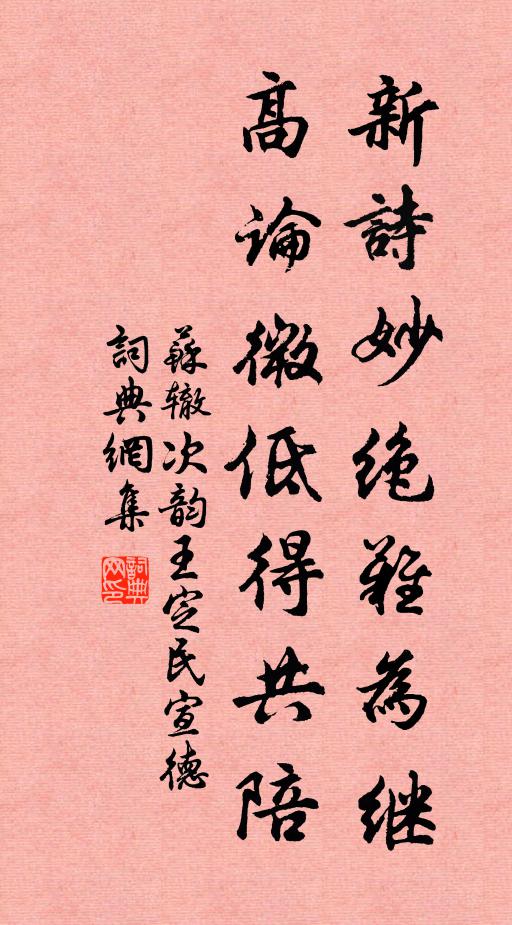 新詩妙绝難為继
高論微低得共陪
蘇辙次韵王定民宣德
詞典網集
詞典网印